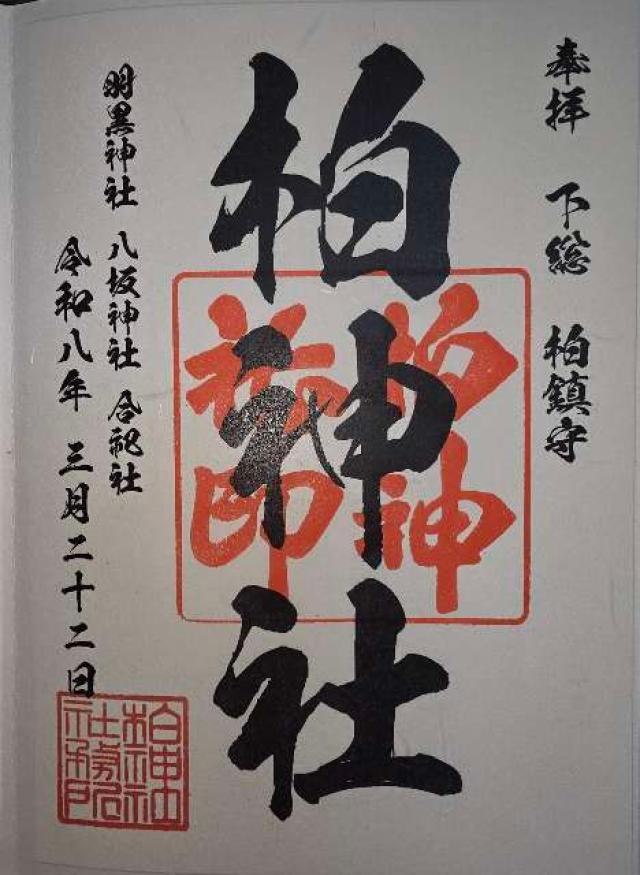 奉拝 下総 柏鎮守
柏神社
羽黒神社 八坂神社 合祀社
令和八年 三月二十二日
柏神
社印
柏神社
社務所